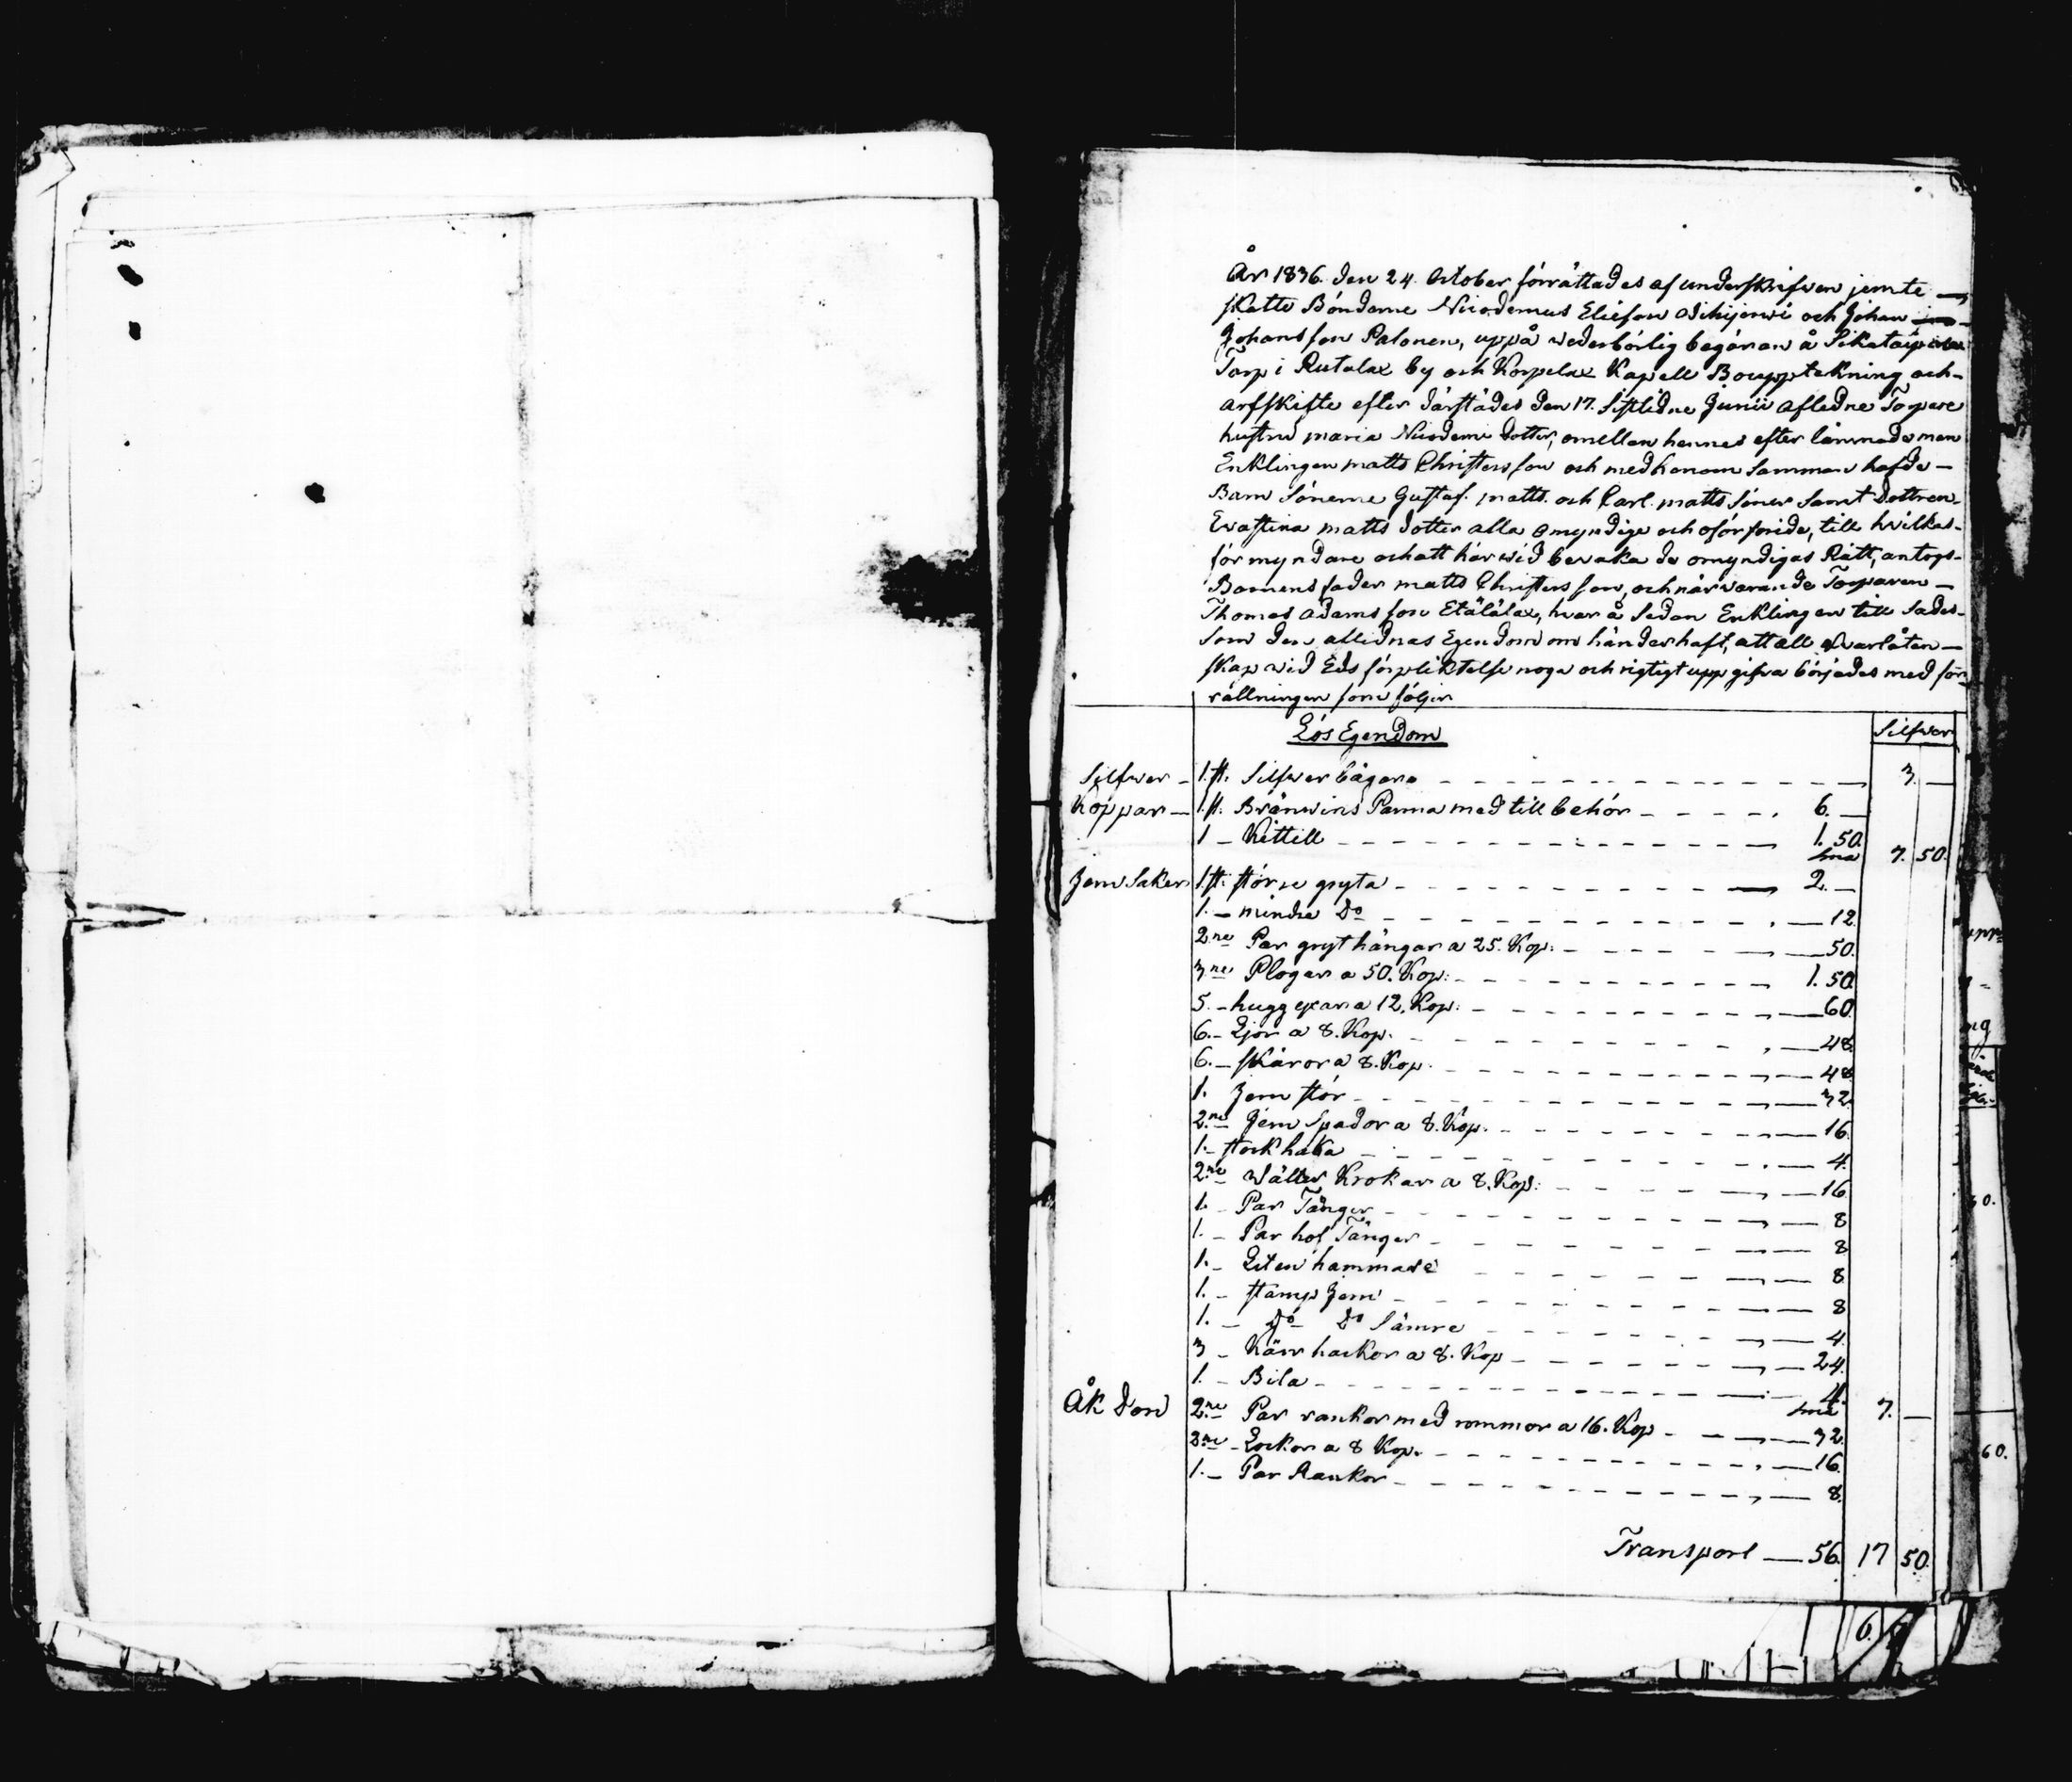 År 1836. den 24. October förrättades af underskrifven jemte
skatte Bönderne Nicodemus Eliesson och Johan
Johansson Palonen, uppå wederbörlig begäran å
Torp i Rutalax by och Korpelax Kapell Bouppteknning och
arfskifte efter därstädes den 17. Sistledne Junii afledne Torpare
hustru maria Nicodemi dotter, emellan hennes efter lämnade man
Enklingen matts Christersson och med honom samman hafde
Barn Sönerne Gustaf. matts. och Carl. matts Söner samt dottren
Evastina matts dotter alla omyndige och oförsöride, till hvilkas
förmyndare och att härwid bevaka de omyndigas Rätt, antogs
Barnens fader matts Christersson, och närwarande Torparen
Thomas Adamsson Etälälax, hvar å sedan Enklingen till sades
som den aflednas Egendom om händer haft, att all qwarlåten
skap wid Eds förpliktelse noga och rigtigt uppgifva börjades med för
rättningen som följer
Lös Egendom
Silfwer
Silfwer 1. st. Silfwer bägare 3. —
Koppar 1 st. Bränwins Panna med till behör 6. —
1 Kittell 1. 50. 7. 50.
Jern Saker 1. st. större gryta 2. —
1. mindre do 12
2ne Par gryt hängar a 25. Kop. 50.
3ne Plogar a 50. Kop. 1. 50
5. hugg yxar a 12. Kop. 60
6. Ljor a 8. Kop. 48
6. skäror a 8. Kop. 48
1. Jern stör 32
2ne Jern Spador a 8. Kop. 16
1. stock haka 4.
2ne Wälter Krokar a 8. Kop. 16
1. Par Tänger 8
1. Par hof Tänger 8
1. Liten hammare 8
1. stamp Jern 8
1. do do Sämre 4.
3 Kärr hackor a 8. Kop 24.
1. Bila 4. 7. —
Åk don 2ne Par rankor med rommor a 16. Kop 32.
2ne Lockor a 8 Kop. 16.
1. Par Rankor 8.
Transport — 56. 17 50.
60.